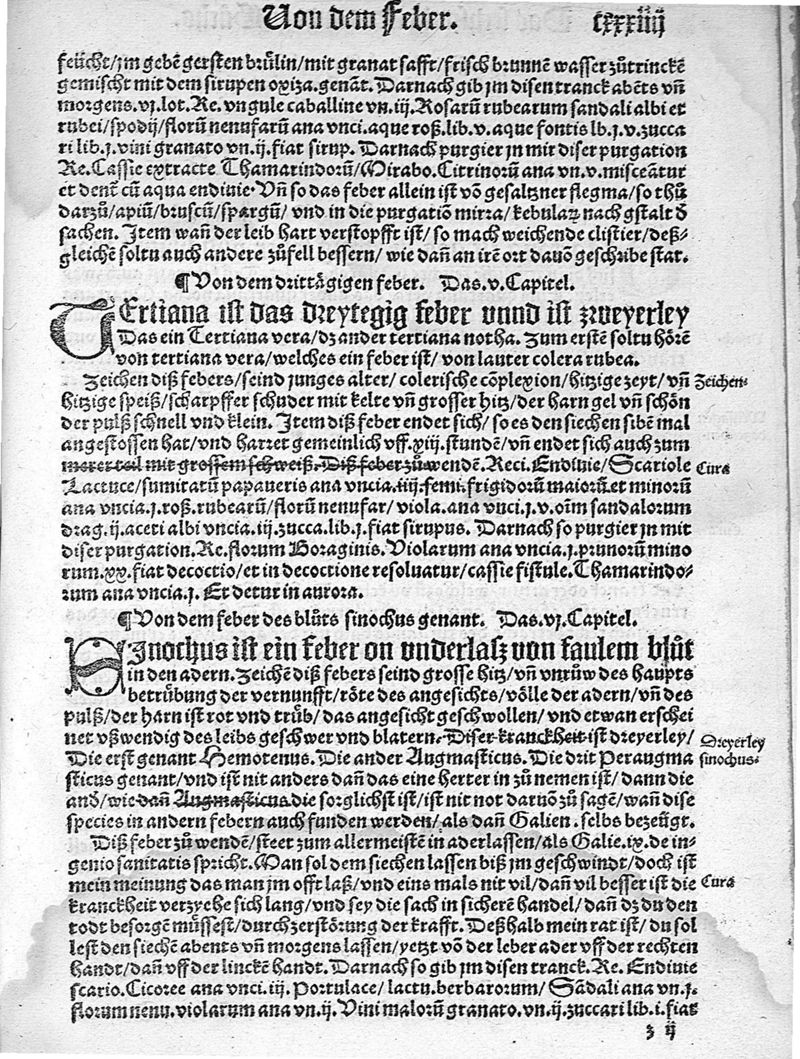 Von dem Feber. cxxxiiij
feücht/jm gebē gersten brülin/mit granat safft/frisch brunnē wasser zůtrinckē
gemischt mit dem sirupen oxiza.genāt. Darnach gib jm disen tranck abēts vñ
morgens.vj.lot. Re. vngule caballine vn.iij. Rosarū rubearum sandali albi et
rubei/spodij/florū nenufarū ana vnci.aque roß.lib.v.aque fontis lb.j.v.zucca
ri lib.j.vini granato vn.ij.fiat sirup. Darnach purgier jn mit diser purgation
Re. Cassie extracte Thamarindorū/Mirabo.Citrinorū ana vn.v.misceātur
et denē cū aqua endiuie. Vñ so das feber allein ist vō gesaltzner flegma/so thů
darzů/apiū/bruscū/spargū/ vnd in die purgatiō mirra/kebulaꝝ nach gstalt đ
sachen. Item wañ der leib hart verstopfft ist/ so mach weichende clistier/deß-
gleichē soltu auch andere zůfell bessern/ wie dañ an irē ort dauō geschribē stat.
¶Von dem drittägigen feber. Das.v.Capitel.
TErtiana ist das dreytegig feber vnnd ist zweyerley
Das ein Tertiana vera/dz ander tertiana notha. Zum erstē soltu hörē
von tertiana vera/welches ein feber ist/ von lauter colera rubea.
Zeichen diß febers/seind junges alter/ colerische cōplexion/hitzige zeyt/ vñ Zeichen.
hitzige speiß/scharpffer schuder mit kelte vñ grosser hitz/der harn gel vñ schön
der pulß schnell vnd klein. Item diß feber endet sich/ so es den siechen sibē mal
angestossen hat/vnd harret gemeinlich vff.xiij.stundē/vñ endet sich auch zum
merer teil mit grossem schweiß. Diß feber zů wendē. Reci. Endiuie/Scariole Cura
Lactuce/sumitatū papaueris ana vncia.iiij.semi.frigidorū maiorū.et minorū
ana vncia.j.roß.rubearū/florū nenufar/ viola.ana vnci.j.v.oīm sandalorum
drag.ij.aceti albi vncia.iij.zucca.lib.j.fiat sirupus. Darnach so purgier jn mit
diser purgation. Re. florum Boraginis. Violarum ana vncia.j.prunorū mino
rum.xx.fiat decoctio/et in decoctione resoluatur/cassie fistule.Thamarindo-
rum ana vncia.j. Et detur in aurora.
¶Von dem feber des blůts sinochus genant. Das.vj.Capitel.
SJnochus ist ein feber on vnderlasz von faulem blůt
in den adern. Zeichē diß febers seind grosse hitz/vñ vnrůw des haupts
betrübung der vernunfft/röte des angesichts/völle der adern/vñ des
pulß/der harn ist rot vnd trüb/das angesicht geschwollen/ vnd etwan erschei
net vßwendig des leibs geschwer vnd blatern. Diser kranckheit ist dreyerley/ Dreyerley
Die erst genant Hemotenus. Die ander Augmasticus. Die drit Peraugma sinochus.
sticus genant/vnd ist nit anders dañ das eine herter in zů nemen ist/ dann die
and̄/wie dañ Augmasticus die sorglichst ist/ist nit not daruō zů sagē/wañ dise
species in andern febern auch funden werden/als dañ Galien.selbs bezeügt.
Diß feber zů wendē/steet zum allermeistē in aderlassen/als Galie.ix.de in-
genio sanitatis spricht. Man sol dem siechen lassen biß jm geschwindt/doch ist
mein meinung das man jm offt laß/vnd eins mals nit vil/dañ vil besser ist die Cura
kranckheit verzyehe sich lang/ vnd sey die sach in sicherē handel/ dañ dz du den
todt besorgē müssest/durch zerstörung der krafft. Deßhalb mein rat ist/ du sol
lest den siechē abents vñ morgens lassen/yetzt vō der leber ader vff der rechten
handt/dañ vff der linckē handt. Darnach so gib jm disen tranck. Re. Endiuie
scario.Cicoree ana vnci.iij. Portulace/ lactu.berbarorum/ Sādali ana vn.j.
florum nenu.violarum ana vn.ij. Vini malorū granato.vn.ij.zuccari lib.i.fiat
z ij